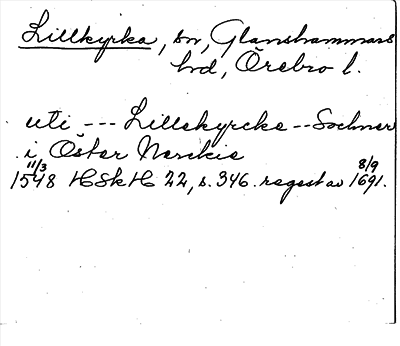 Lillkyrka, sn, Glanshammars
hd, Örebro l.
uti --- Lillekyrcke -- Sochner
i Öster Nerickie
11/3 8/9
1548 HSkH 22, s. 346. regest av 1691.